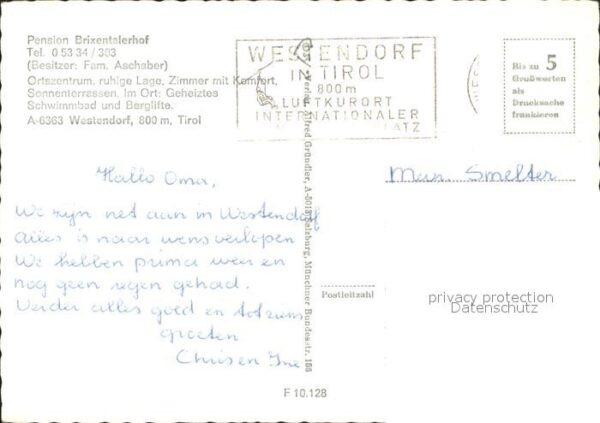 Pension Brixentalerhof
Tel. 0 53 34 / 303
(Besitzer: Fam. Aschaber)
Ortszentrum, ruhige Lage, Zimmer mit Komfort,
Sonnenterrassen. Im Ort: Geheiztes
Schwimmbad und Berglifte.
A-6363 Westendorf, 800 m, Tirol
WESTENDORF
IN TIROL
800 m
LUFTKURORT
INTERNATIONALER
ATZ
Bis zu 5
Grußworten
als
Drucksache
frankieren
Hallo Oma,
We zijn net aan in Westendorf
alles is naar wens verlopen
We hebben prima weer en
nog geen regen gehad.
Verder alles goed en tot ziens
groeten
Chris en Ine
Alfred Gründler, A-5018 Salzburg, Münchner Bundesstr. 156
Smelter
Postleitzahl
privacy protection
Datenschutz
F 10.128